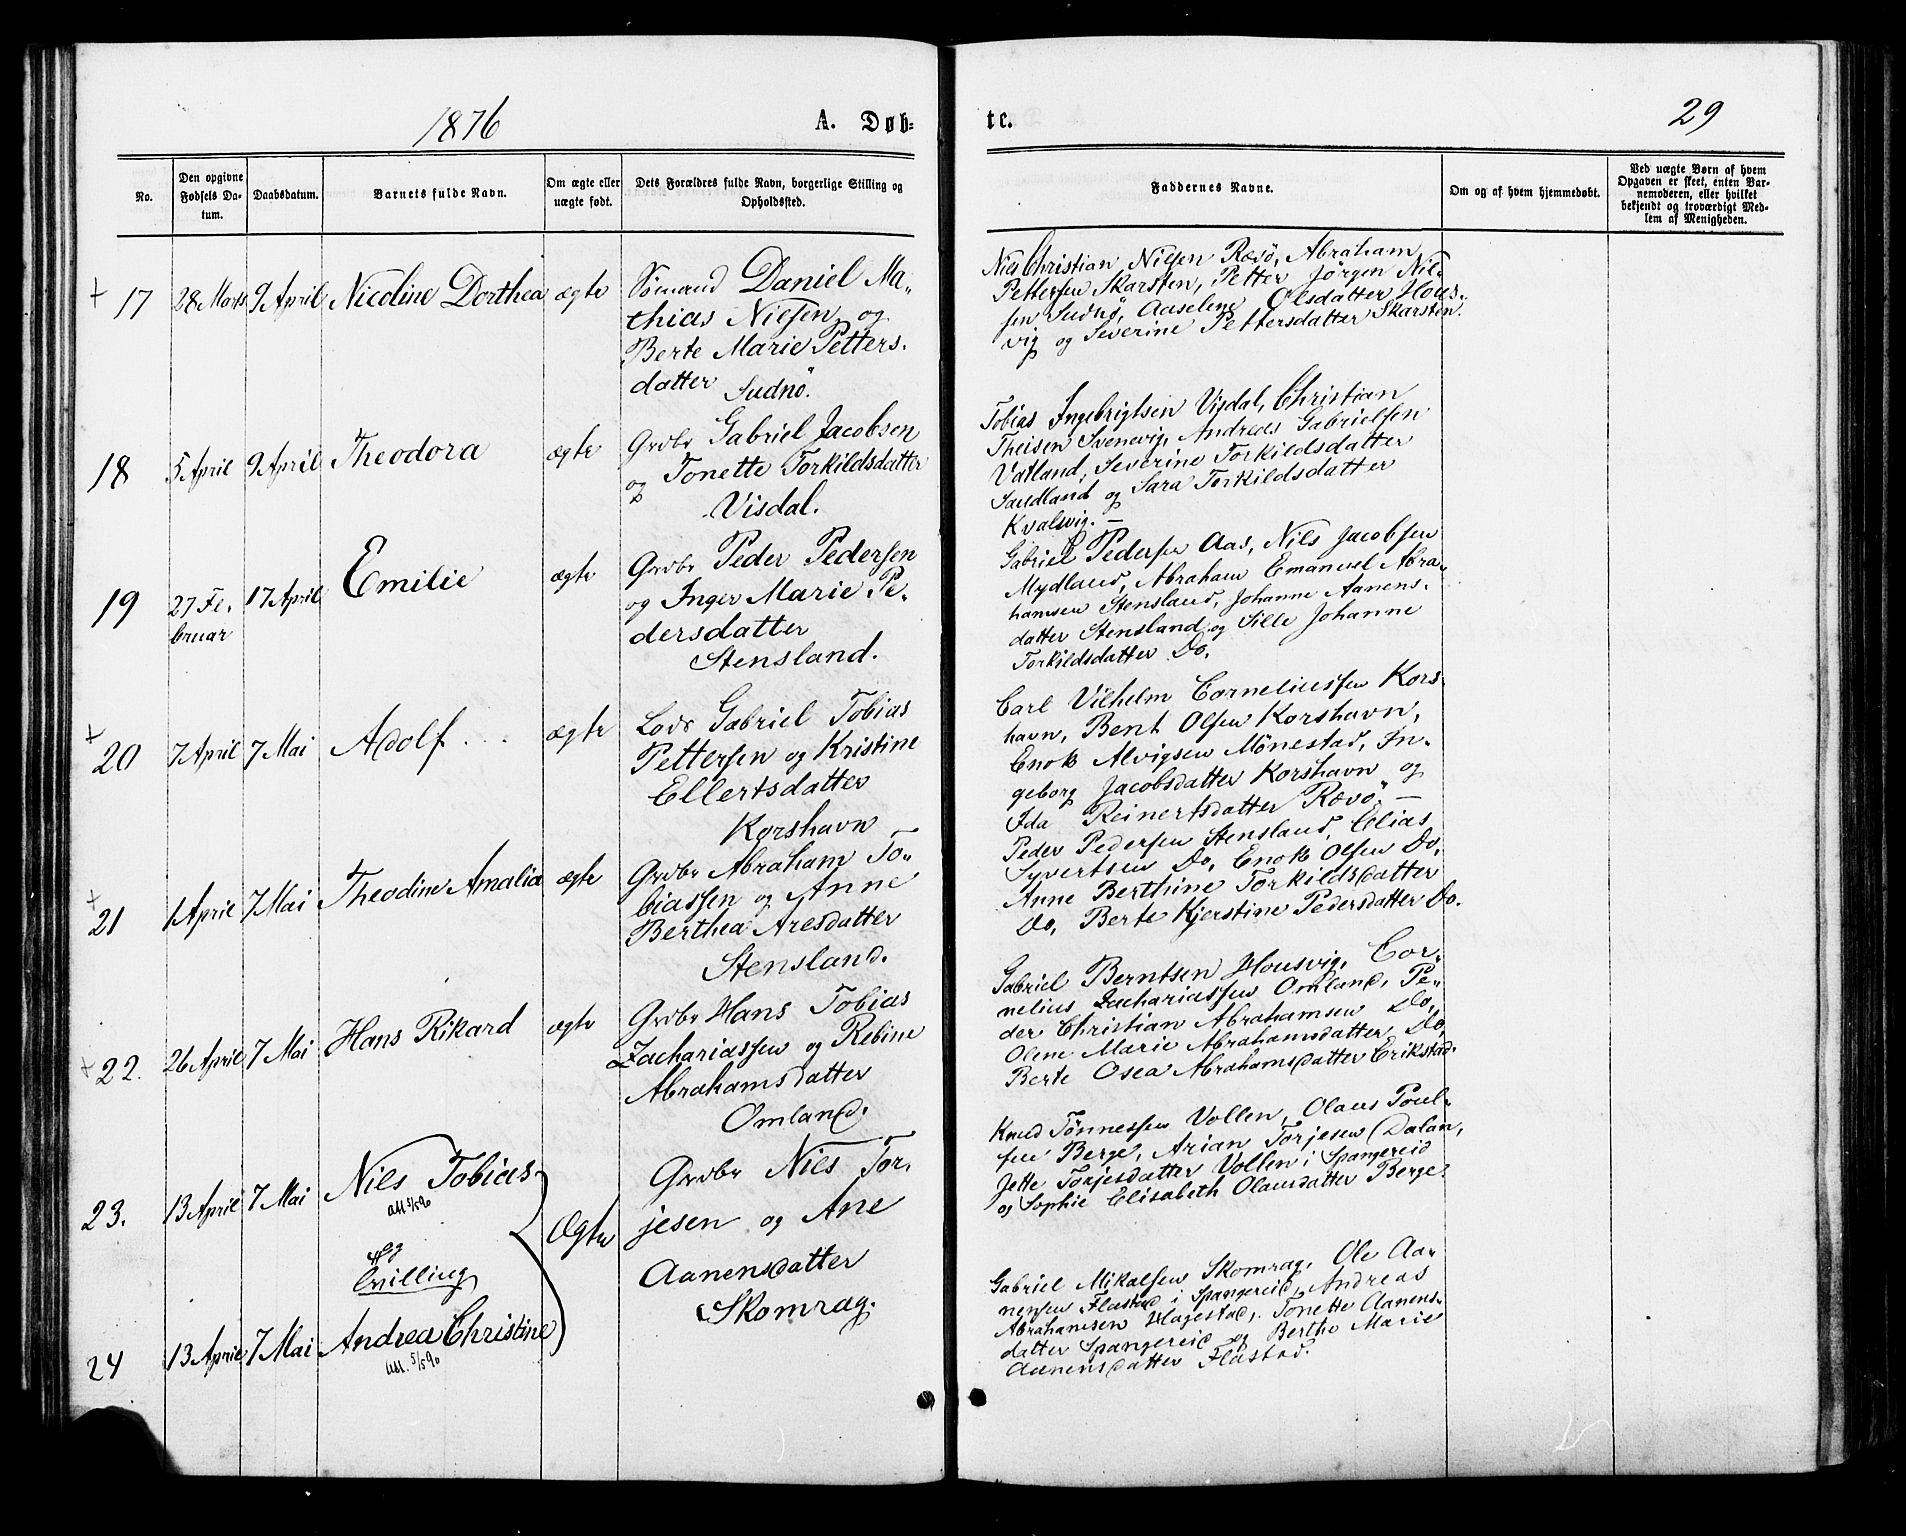 1876
A. Døb-
te.
29
No.
Den opgivne
Fødsels Da-
tum.
Daabsdatum.
Barnets fulde Navn.
Om ægte eller
uægte født.
Dets Forældres fulde Navn, borgerlige Stilling og
Opholdssted.
Faddernes Navne.
Om og af hvem hjemmedøbt.
Ved uægte Børn af hvem
Opgaven er skeet, enten Bar-
nemoderen, eller hvilket
bekjendt og troværdigt Med-
lem af Menigheden.
+ 17 28 Marts 9 April Nicoline Dorthea ægte
Sömand Daniel Ma-
thias Nilsen og
Berte Marie Petters-
datter Sudnö.
Nils Christian Nilsen Rævö, Abraham
Pettersen Skarsten, Petter Jörgen Niel-
sen Sudnö, Aaselene Olsdatter Hous-
vig og Severine Pettersdatter Skarsten.
18 5 April 9 April Theodora ægte
Grdbr Gabriel Jacobsen
og Tonette Torkildsdatter
Visdal.
Tobias Ingebrigtsen Visdal, Christian
Theisen Svenevig, Andreas Gabrielsen
Vatland, Severine Torkildsdatter
Sandland og Sara Torkildsdatter
Kvalsvig. —
19 27 Fe-
bruar 17 April Emilie ægte
Grdbr Peder Pedersen
og Inger Marie Pe-
dersdatter
Stensland.
Gabriel Pedersen Aas, Nils Jacobsen
Mydland, Abraham Emanuel Abra-
hamsen Stensland, Johanne Aanens-
datter Stensland og Sille Johanne
Torkildsdatter Do.
+ 20 7 April 7 Mai Adolf . . . ægte
Lods Gabriel Tobias
Pettersen og Kristine
Ellertsdatter
Korshavn
Carl Vilhelm Corneliussen Kors-
havn, Bent Olsen Korshavn,
Enok Alvigsen Mönestad, In-
geborg Jacobsdatter Korshavn og
Ida Reinertsdatter Rævö. —
+ 21 1 April 7 Mai Theodine Amalia ægte
Grdbr Abraham To-
biassen og Anne
Berthea Aresdatter
Stensland.
Peder Pedersen Stensland, Elias
Syvertsen Do, Enok Olsen Do,
Anne Berthine Torkildsdatter
Do, Berte Kjerstine Pedersdatter Do.
+ 22. 26 April 7 Mai Hans Rikard ægte
Grdbr Hans Tobias
Zachariassen og Rebine
Abrahamsdatter
Omland.
Gabriel Berntsen Housvig, Cor-
nelius Zachariassen Omland, Pe-
der Christian Abrahamsen Do,
Olene Marie Abrahamsdatter Do,
Berte Osea Abrahamsdatter Erikstad.
23. 13 April 7 Mai Nils Tobias
Att 5/5 90
og
Tvilling
Ægte
Grdbr Nils Tor-
jesen og Ane
Aanensdatter
Skomrag.
Knud Tönnessen Vollen, Olaus Poul-
sen Berge, Arian Torjesen Dalan,
Jette Torjesdatter Vollen i Spangereid
og Sophie Elisabeth Olausdatter Berge.
24 13 April 7 Mai Andrea Christine
Att. 5/5 90
Gabriel Mikalsen Skomrag, Ole Aa-
nensen Flastad i Spangereid, Andreas
Abrahamsen Hagestad, Tonette Aanens-
datter Spangereid og Berthe Marie
Aanensdatter Flastad.